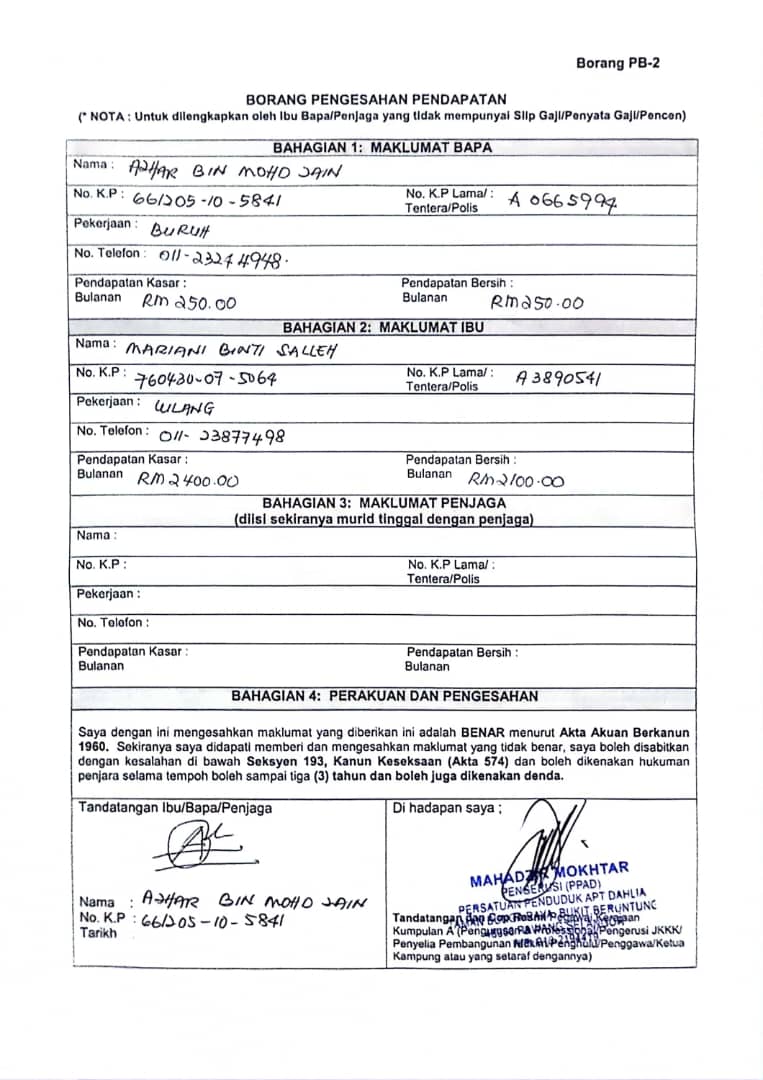 Borang PB-2
BORANG PENGESAHAN PENDAPATAN
(* NOTA : Untuk dilengkapkan oleh Ibu Bapa/Penjaga yang tidak mempunyai Slip Gaji/Penyata Gaji/Pencen)
BAHAGIAN 1: MAKLUMAT BAPA
Nama : AZHAR BIN MOHD JAIN
No. K.P : 661205-10-5841 No. K.P Lama/ : A 0665994
Tentera/Polis
Pekerjaan : BURUH
No. Telefon : 011-23274948.
Pendapatan Kasar : Pendapatan Bersih :
Bulanan RM 250.00 Bulanan RM250.00
BAHAGIAN 2: MAKLUMAT IBU
Nama : MARIANI BINTI SALLEH
No. K.P : 760430-07-5064 No. K.P Lama/ : A3890541
Tentera/Polis
Pekerjaan :
No. Telefon : 011-23877498
Pendapatan Kasar : Pendapatan Bersih :
Bulanan RM2400.00 Bulanan RM2100.00
BAHAGIAN 3: MAKLUMAT PENJAGA
(diisi sekiranya murid tinggal dengan penjaga)
Nama :
No. K.P : No. K.P Lama/ :
Tentera/Polis
Pekerjaan :
No. Telefon :
Pendapatan Kasar : Pendapatan Bersih :
Bulanan Bulanan
BAHAGIAN 4: PERAKUAN DAN PENGESAHAN
Saya dengan ini mengesahkan maklumat yang diberikan ini adalah BENAR menurut Akta Akuan Berkanun
1960. Sekiranya saya didapati memberi dan mengesahkan maklumat yang tidak benar, saya boleh disabitkan
dengan kesalahan di bawah Seksyen 193, Kanun Keseksaan (Akta 574) dan boleh dikenakan hukuman
penjara selama tempoh boleh sampai tiga (3) tahun dan boleh juga dikenakan denda.
Tandatangan Ibu/Bapa/Penjaga
Nama : AZHAR BIN MOHD JAIN
No. K.P : 661205-10-5841
Tarikh
Di hadapan saya ;
MOKHTAR
PENGERUSI (PPAD)
PERSATUAN PENDUDUK APT DAHLIA
BUKIT BERUNTUNG
Tandatangan dan Cop Rasmi Pegawai Kerajaan
Kumpulan A (Pengurusan & Professional/Pengerusi JKKK/
Penyelia Pembangunan /Penghulu/Penggawa/Ketua
Kampung atau yang setaraf dengannya)